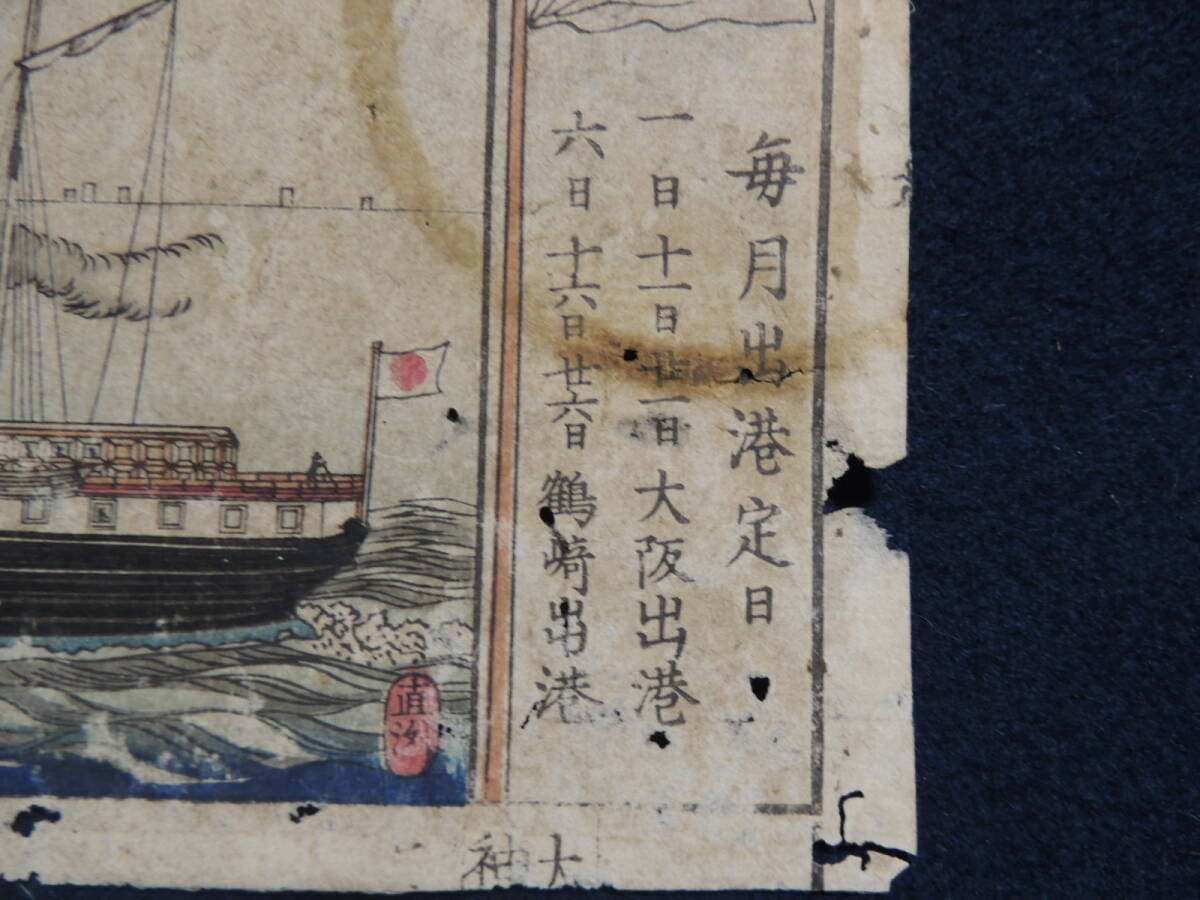 毎月出港定日
一日十一日廿一日大阪出港
六日十六日廿六日鶴崎出港
直次
大袖